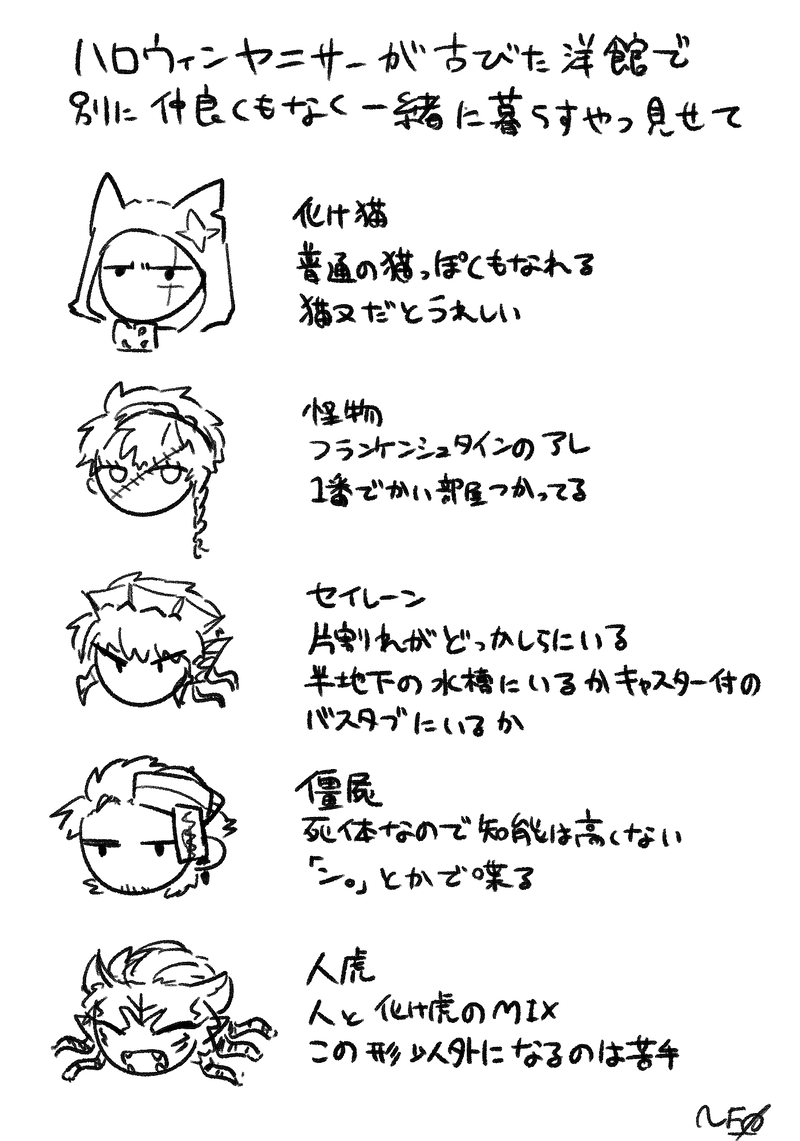 ハロウィンヤニサーが古びた洋館で
別に仲良くもなく一緒に暮らすやつ見せて
化け猫
普通の猫っぽくもなれる
猫又だとうれしい
怪物
フランケンシュタインのアレ
1番でかい部屋つかってる
セイレーン
片割れがどっかしらにいる
半地下の水槽にいるかキャスター付の
バスタブにいるか
僵屍
死体なので知能は高くない
「シ。」とかで喋る
人虎
人と化け虎のMIX
この形以外になるのは苦手